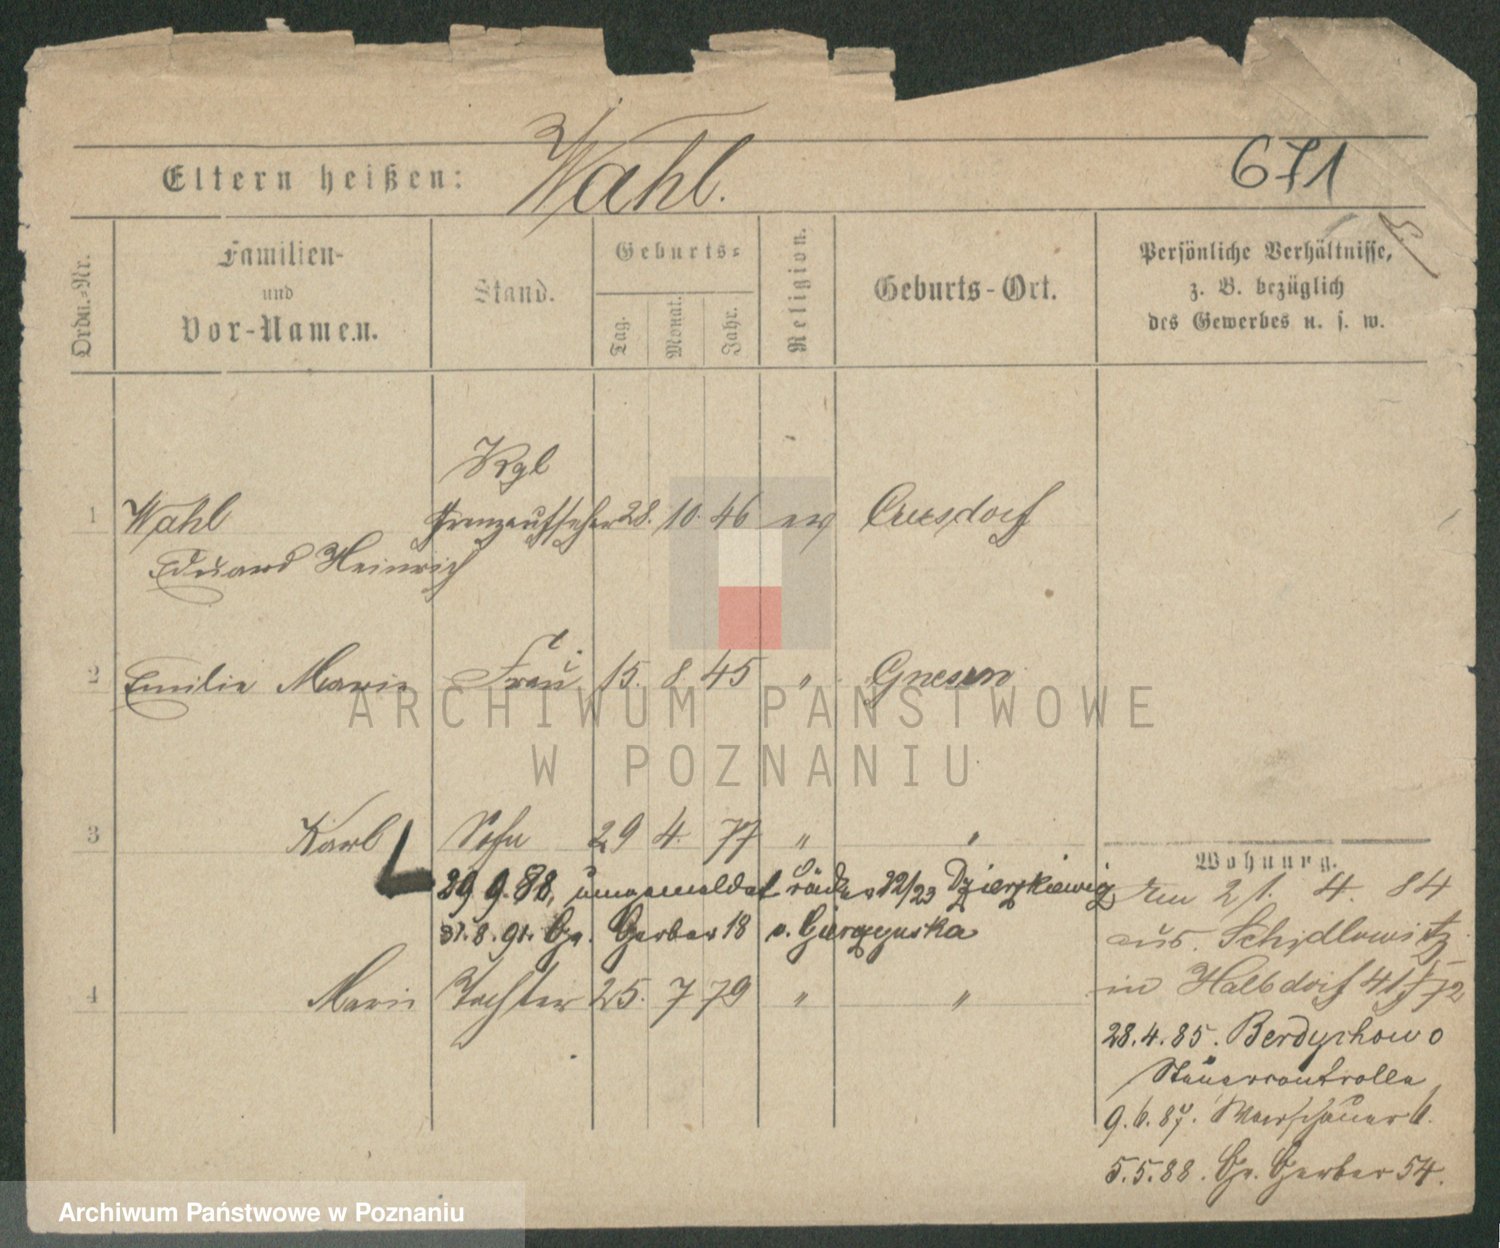 Eltern heißen: Wahl. 671
Ordn.-Nr.
Familien-
und
Vor-Namen.
Stand.
Geburts-
Tag.
Monat.
Jahr.
Religion.
Geburts-Ort.
Persönliche Verhältnisse,
z. B. bezüglich
des Gewerbes u. s. w.
Kgl
1 Wahl Grenzaufseher 28. 10. 46 ev
Eduard Heinrich
2 Emilie Marie Frau 15. 8 45 " Gnesen
ARCHIWUM PAŃSTWOWE
W POZNANIU
3 Karl Sohn 29 4. 77 " "
29.9.88, umgemeldet
31.8.91. Gr. Gerber 18
4 Marie Tochter 25. 7 79 " "
Wohnung.
21. 4. 84
aus. Schidlowitz
in Halbdorf
28.4.85. Berdychowo
Steuercontrolle
9.6.87. Warschauer 6.
5.5.88. Gr. Gerber 54.
Archiwum Państwowe w Poznaniu